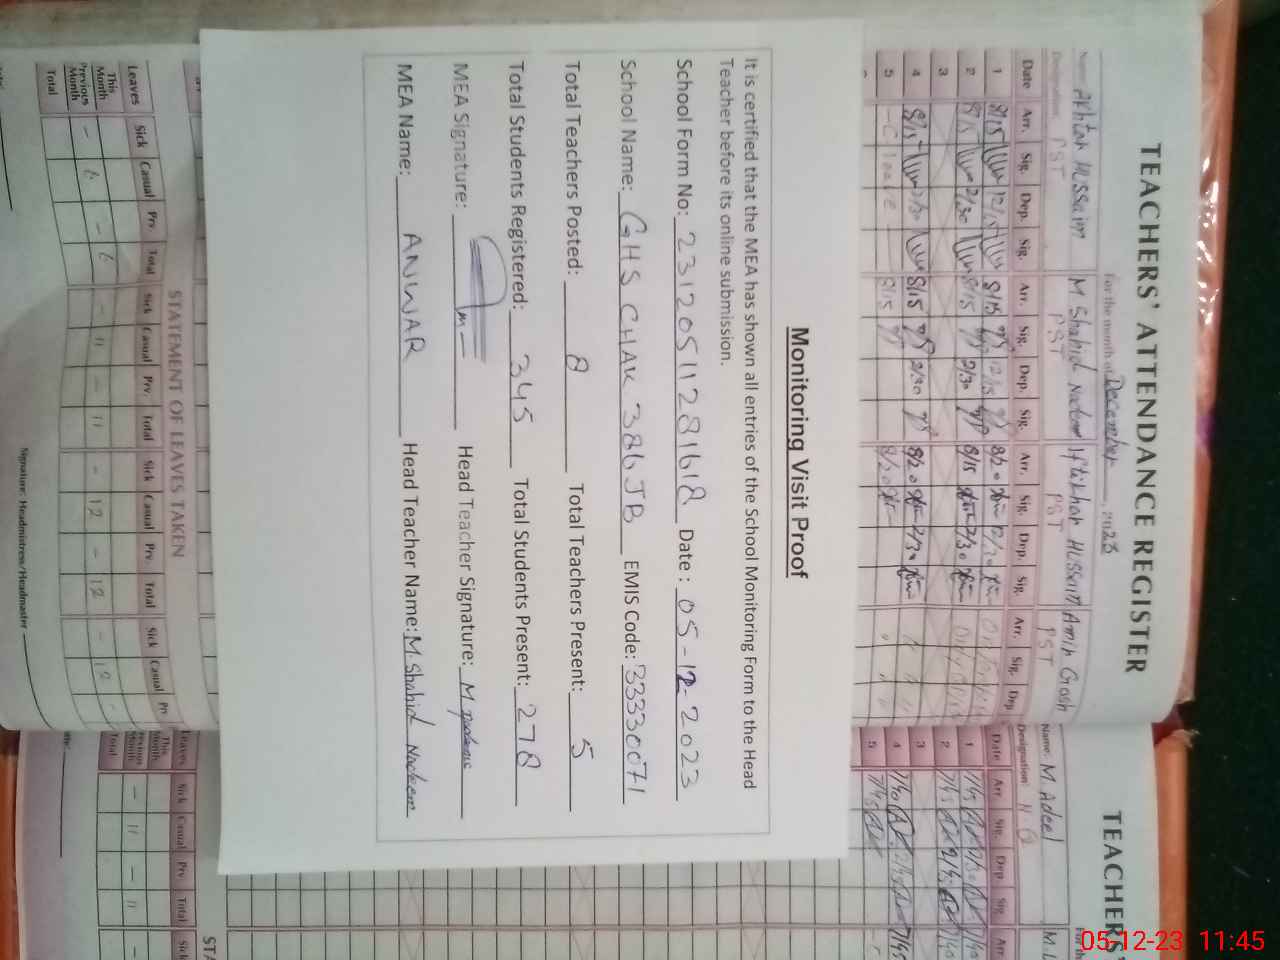 Monitoring Visit Proof
It is certified that the MEA has shown all entries of the School Monitoring Form to the Head
Teacher before its online submission.
School Form No: 23120511281618 Date : 05-12-2023
School Name: GHS CHAK 386 JB EMIS Code: 33330071
Total Teachers Posted: 8 Total Teachers Present: 5
Total Students Registered: 345 Total Students Present: 278
MEA Signature: Head Teacher Signature:
MEA Name: ANWAR Head Teacher Name: M. Shahid Nadeem
TEACHERS' ATTENDANCE REGISTER
For the month of December, 2023
Name: Akhtar Hussain M Shahid Nadeem Iftikhar Hussain Amin Gosh
Designation: PST PST PST PST
Date Arr. Sig. Dep. Sig. Arr. Sig. Dep. Sig. Arr. Sig. Dep. Sig. Arr. Sig. Dep
1 8/15 12/15 8/15 12/15 8/20
2 8/15 2/30 8/15 2/30 8/15 2/30
3
4 8/15 2/30 8/15 2/30 8/20 2/30
5 C leave 8/15 8/20
STATEMENT OF LEAVES TAKEN
Leaves Sick Casual Prv. Total Sick Casual Prv. Total Sick Casual Prv. Total Sick Casual
This Month
Previous Month - 6 - 6 - 11 - 11 - 12 - 12 - 12
Total
Signature: Headmistress/Headmaster
TEACHERS'
Name: M Adeel
Designation:
Date Arr. Sig. Dep. Sig. Arr.
1 7/45
2 7/45
3
4 7/40
5 7/45
STA
Leaves Sick Casual Prv. Total Sick
This Month
Previous Month - 11 - 11 -
Total
05-12-23 11:45